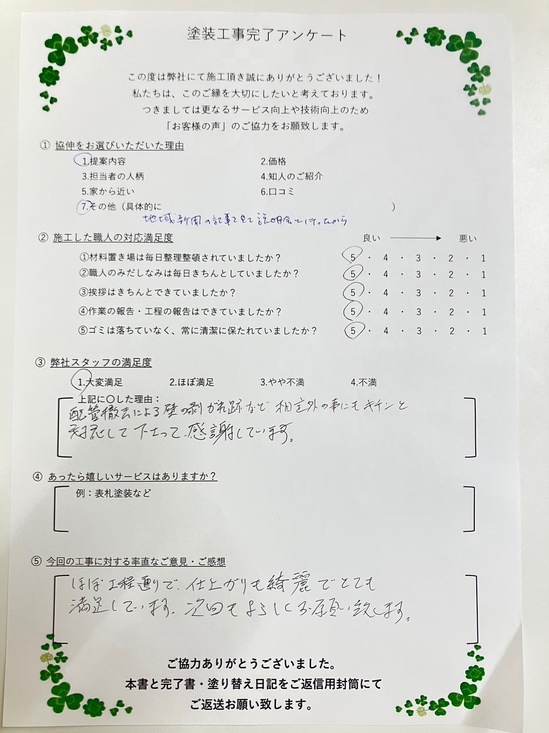 塗装工事完了アンケート
この度は弊社にて施工頂き誠にありがとうございました！
私たちは、このご縁を大切にしたいと考えております。
つきましては更なるサービス向上や技術向上のため
「お客様の声」のご協力をお願致します。
① 協伸をお選びいただいた理由
1.提案内容 2.価格
3.担当者の人柄 4.知人のご紹介
5.家から近い 6.口コミ
7.その他（具体的に ）
地域新聞の記事を見て説明会に行ったから
② 施工した職人の対応満足度 良い 悪い
①材料置き場は毎日整理整頓されていましたか？ 5 ・ 4 ・ 3 ・ 2 ・ 1
②職人のみだしなみは毎日きちんとしていましたか？ 5 ・ 4 ・ 3 ・ 2 ・ 1
③挨拶はきちんとできていましたか？ 5 ・ 4 ・ 3 ・ 2 ・ 1
④作業の報告・工程の報告はできていましたか？ 5 ・ 4 ・ 3 ・ 2 ・ 1
⑤ゴミは落ちていなく、常に清潔に保たれていましたか？ 5 ・ 4 ・ 3 ・ 2 ・ 1
③ 弊社スタッフの満足度
1.大変満足 2.ほぼ満足 3.やや不満 4.不満
上記に〇した理由：
配管撤去による壁の剥がれ跡など 想定外の事にもキチンと
対応して下さって、感謝しています。
④ あったら嬉しいサービスはありますか？
例：表札塗装など
⑤ 今回の工事に対する率直なご意見・ご感想
ほぼ工程通りで、仕上がりも綺麗でとても
満足しています。次回もよろしくお願い致します。
ご協力ありがとうございました。
本書と完了書・塗り替え日記をご返信用封筒にて
ご返送お願い致します。